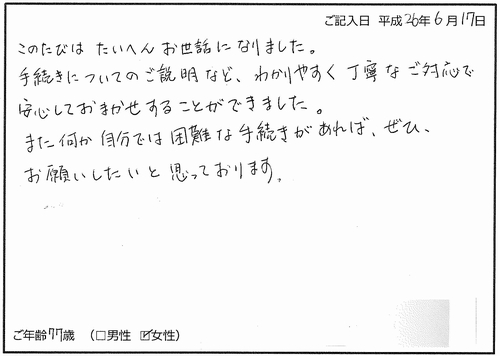 ご記入日 平成26年6月17日
このたびは たいへん お世話になりました。
手続きについてのご説明など、わかりやすく丁寧なご対応で
安心しておまかせすることができました。
また何か自分では困難な手続きがあれば、ぜひ、
お願いしたいと思っております。
ご年齢77歳 （□男性 ☑女性）